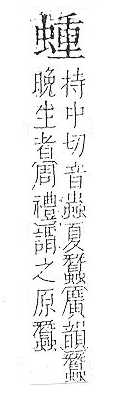 蝩
持中切音蟲夏蠶廣韻蠶
晚生者周禮謂之原蠶